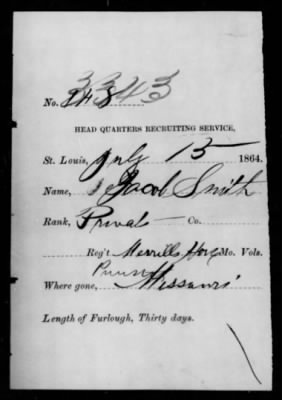 3343
No. 348
HEAD QUARTERS RECRUITING SERVICE,
St. Louis, July 15 1864.
Name, Jacob Smith
Rank, Privat — Co.
Reg't Merrills Mo. Vols.
Where gone, Missouri
Length of Furlough, Thirty days.